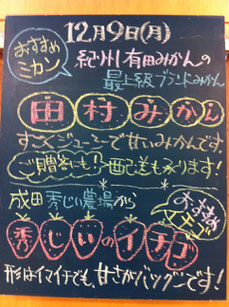 12月9日(月)
おすすめ
ミカン
紀州有田みかんの
最上級ブランドみかん
田村みかん
すごくジューシーで甘いみかんです。
ご贈答にも!配送も承ります!
成田秀じい農場から
おすすめ
イチゴ
秀じいのイチゴ
形はイマイチでも、甘さがバツグンです!